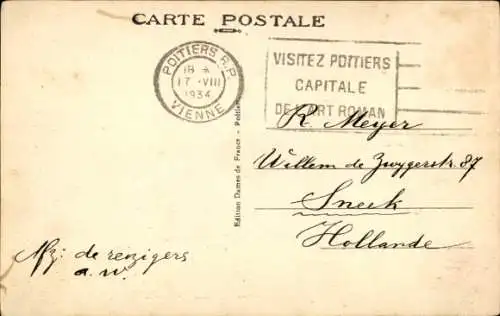 CARTE POSTALE
POITIERS R.P.
18 *
17 -VIII
1934
VIENNE
VISITEZ POITIERS
CAPITALE
DE L'ART ROMAN
R. Meyer
Willem de Zwygerstr. 87
Sneek
Hollande
Edition Dames de France - Poitiers
Afz: de reizigers
a. w.